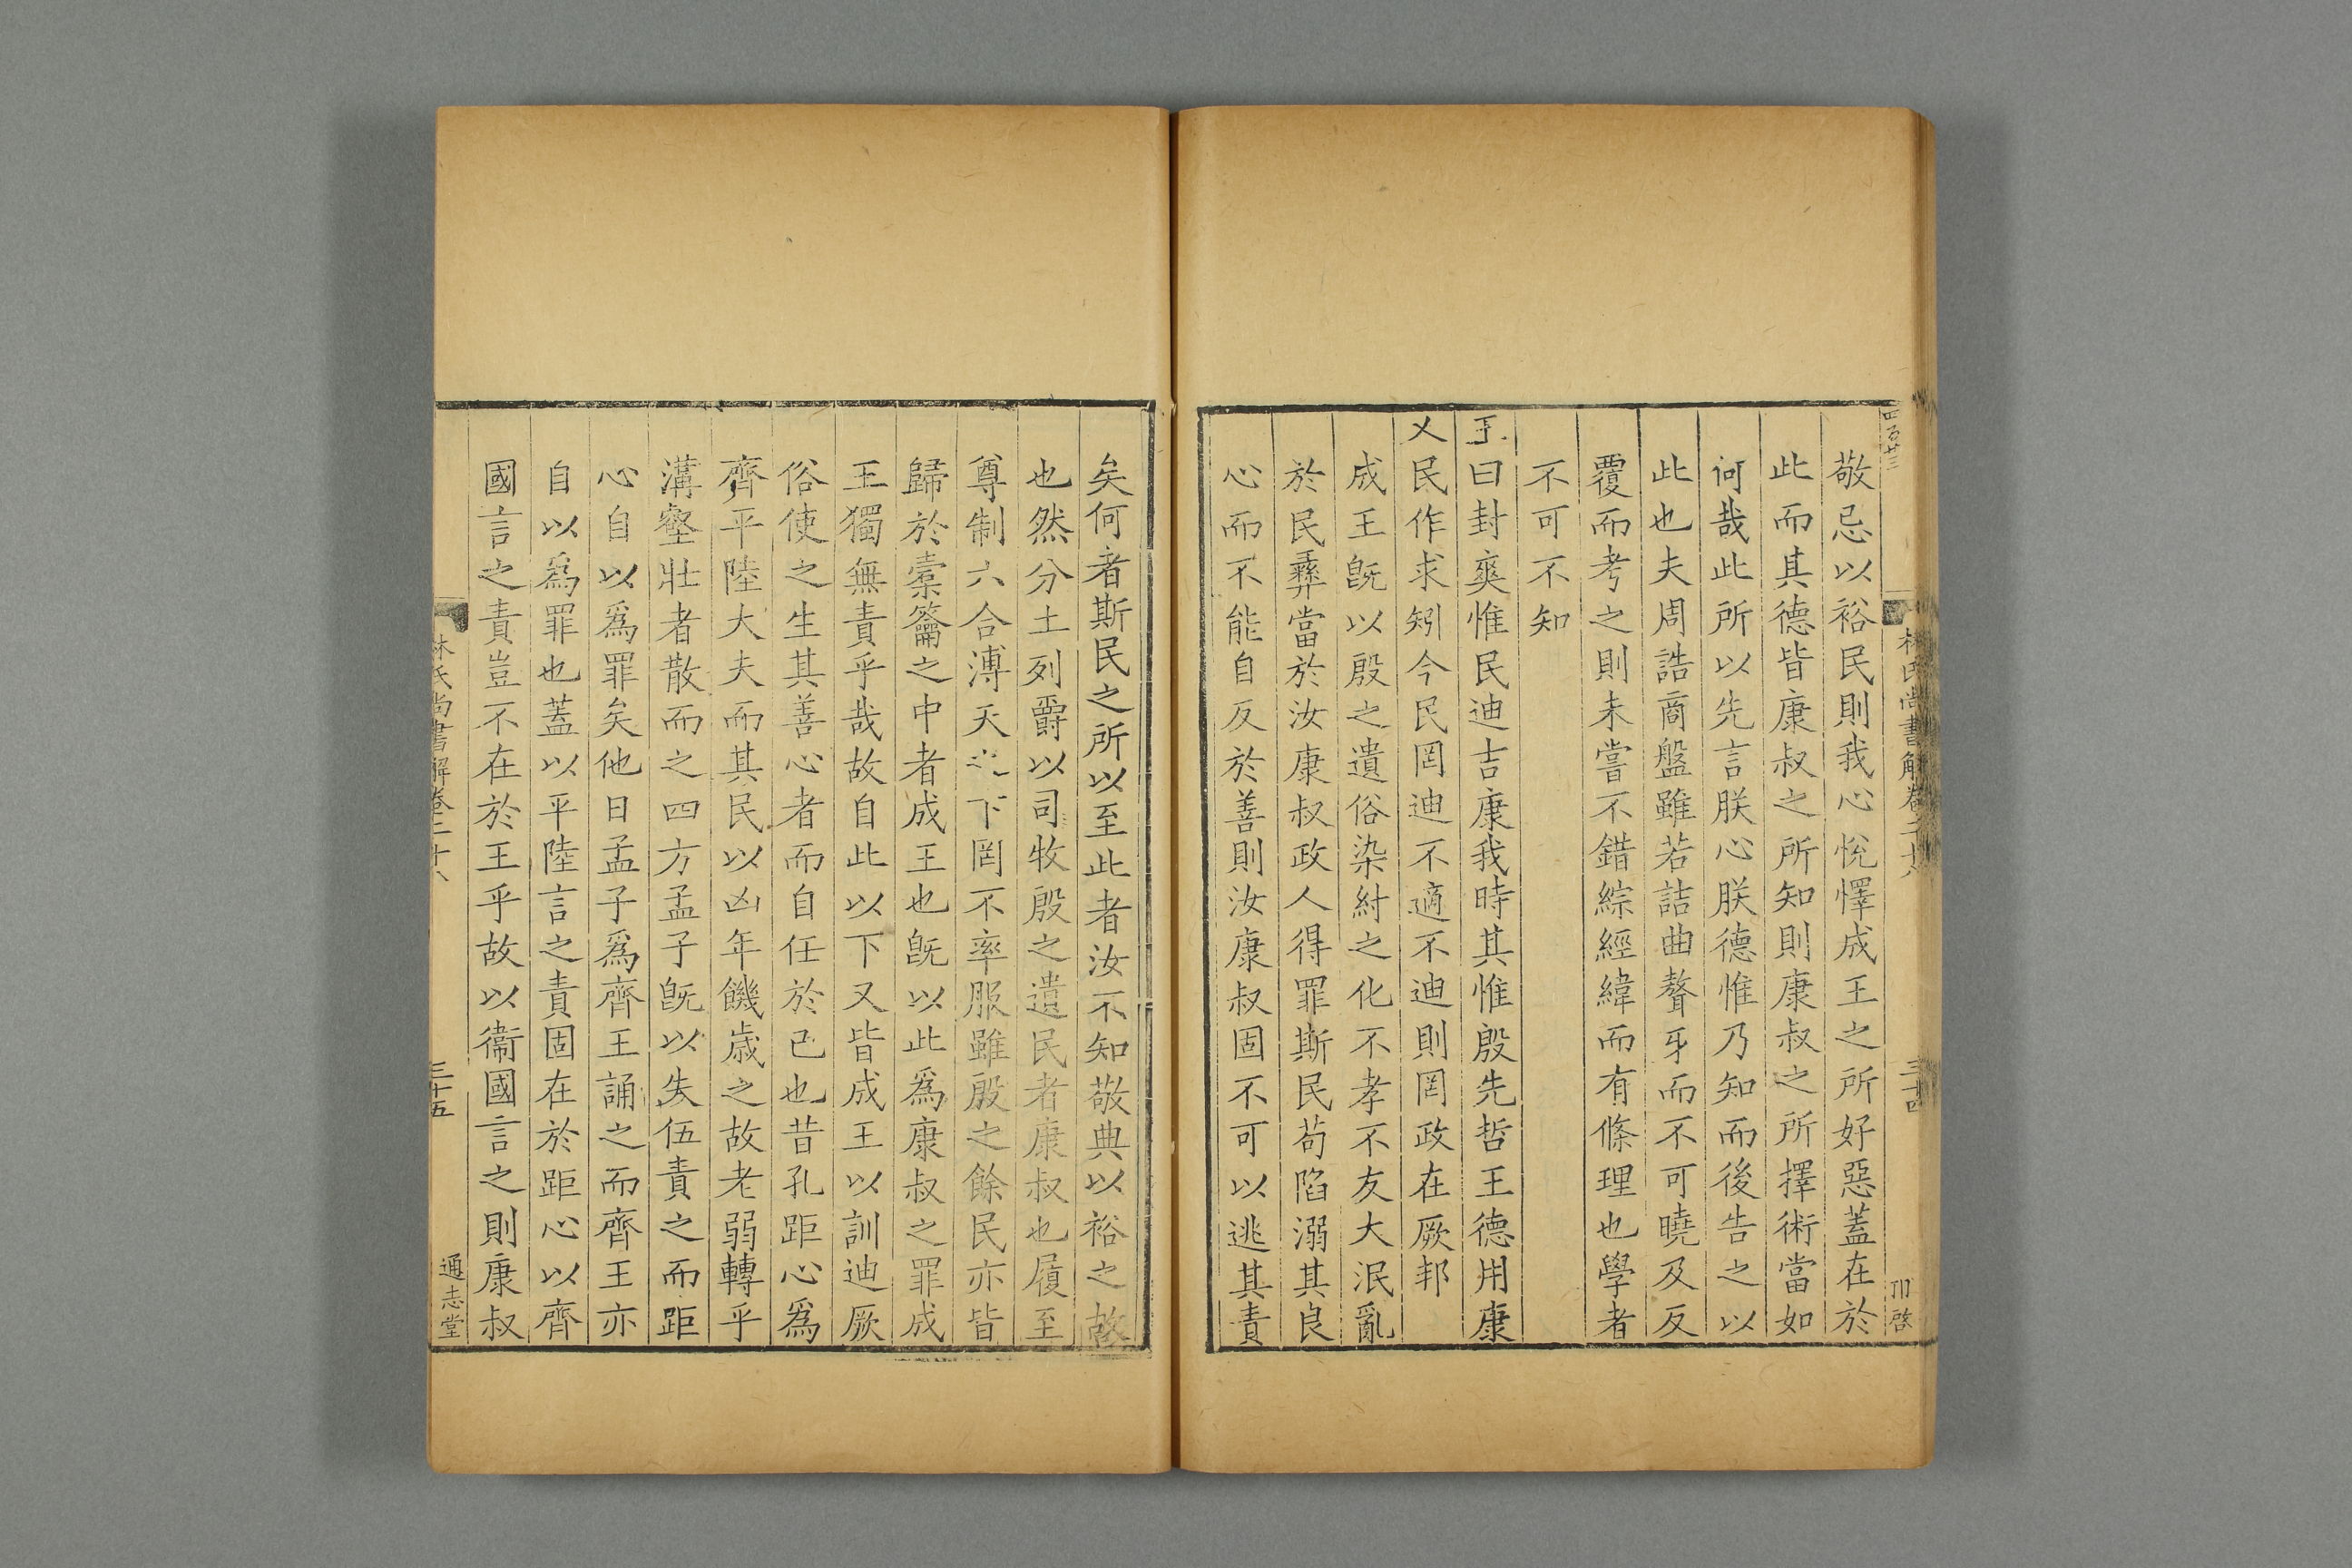 四百廿三
林氏尚書解卷二十八
三十四
卬啓
敬忌以裕民則我心恱懌成王之所好惡蓋在於
此而其德皆康叔之所知則康叔之所擇術當如
何哉此所以先言朕心朕德惟乃知而後告之以
此也夫周誥商盤雖若詰曲聱牙而不可曉及反
覆而考之則未嘗不錯綜經緯而有條理也學者
不可不知
王曰封爽惟民迪吉康我時其惟殷先哲王德用康
乂民作求矧今民罔迪不適不迪則罔政在厥邦
成王旣以殷之遺俗染紂之化不孝不友大泯亂
於民彞當於汝康叔政人得罪斯民苟陷溺其良
心而不能自反於善則汝康叔固不可以逃其責
矣何者斯民之所以至此者汝不知敬典以裕之故
也然分土列爵以司牧殷之遺民者康叔也履至
尊制六合溥天之下罔不率服雖殷之餘民亦皆
歸於橐籥之中者成王也旣以此爲康叔之罪成
王獨無責乎哉故自此以下又皆成王以訓迪厥
俗使之生其善心者而自任於己也昔孔距心爲
齊平陸大夫而其民以凶年饑歲之故老弱轉乎
溝壑壯者散而之四方孟子旣以失伍責之而距
心自以爲罪矣他日孟子爲齊王誦之而齊王亦
自以爲罪也蓋以平陸言之責固在於距心以齊
國言之責豈不在於王乎故以衞國言之則康叔
林氏尚書解卷二十八
三十五
通志堂